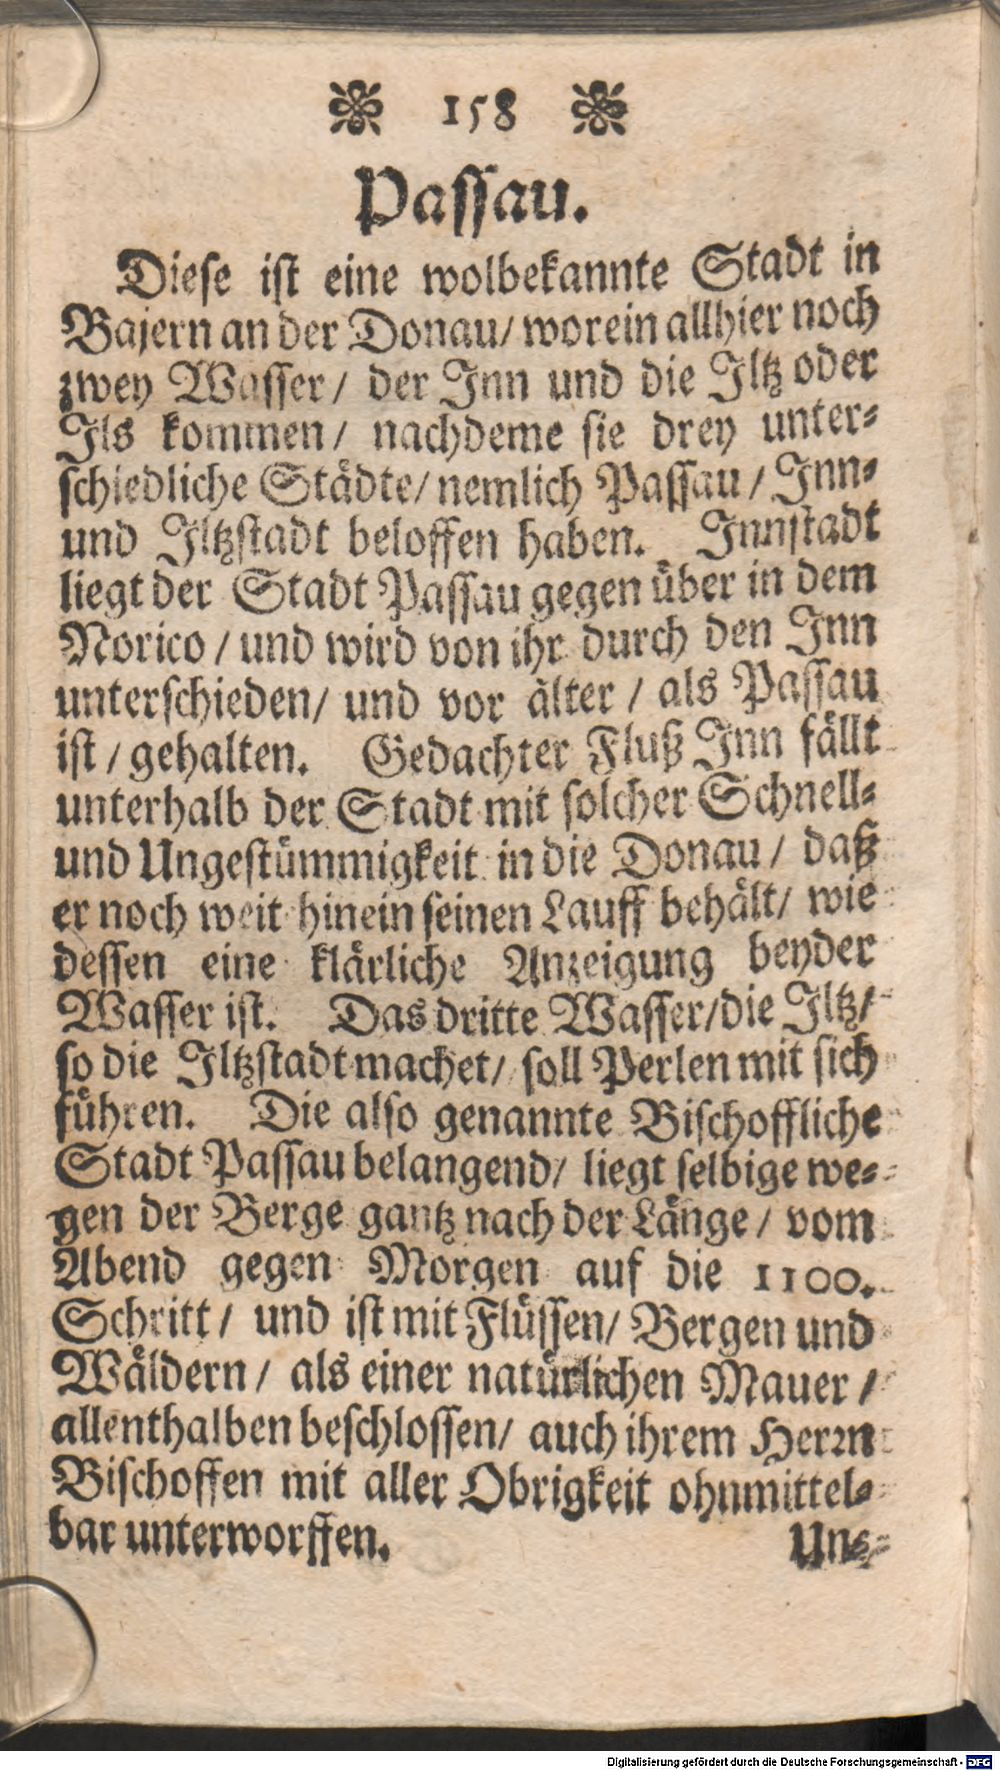 158
Passau.
Diese ist eine wolbekannte Stadt in
Bajern an der Donau/ worein allhier noch
zwey Wasser/ der Inn und die Iltz oder
Ils kommen/ nachdeme sie drey unter-
schiedliche Städte/ nemlich Passau/ Inn-
und Iltzstadt beloffen haben. Innstadt
liegt der Stadt Passau gegen über in dem
Norico/ und wird von ihr durch den Inn
unterschieden/ und vor älter/ als Passau
ist/ gehalten. Gedachter Fluß Inn fällt
unterhalb der Stadt mit solcher Schnell-
und Ungestümmigkeit in die Donau/ daß
er noch weit hinein seinen Lauff behält/ wie
dessen eine klärliche Anzeigung beyder
Wasser ist. Das dritte Wasser/ die Iltz/
so die Iltzstadt machet/ soll Perlen mit sich
führen. Die also genannte Bischoffliche
Stadt Passau belangend/ liegt selbige we-
gen der Berge gantz nach der Länge/ vom
Abend gegen Morgen auf die 1100.
Schritt/ und ist mit Flüssen/ Bergen und
Wäldern/ als einer natürlichen Mauer/
allenthalben beschlossen/ auch ihrem Herrn
Bischoffen mit aller Obrigkeit ohnmittel-
bar unterworffen.
Un-
Digitalisierung gefördert durch die Deutsche Forschungsgemeinschaft - DFG